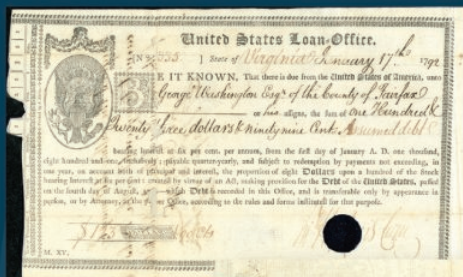 United States Loan-Office.
[No 555.] State of Virginia January 17th 1792
BE IT KNOWN, That there is due from the United States of America, unto
George Washington Esqr. of the County of Fairfax
or his assigns, the sum of One Hundred &
Twenty Three dollars & ninety nine Cents Assumed debt
bearing interest at six per cent. per annum, from the first day of January A. D. one thousand,
eight hundred and one, inclusively; payable quarter-yearly, and subject to redemption by payments not exceeding, in
one year, on account both of principal and interest, the proportion of eight Dollars upon a hundred of the stock
bearing interest at six per cent. created by virtue of an Act, making provision for the Debt of the United States, passed
on the fourth day of August, 1790 which Debt is recorded in this Office, and is transferable only by appearance in
person, or by Attorney, at the Office, according to the rules and forms instituted for that purpose.
$ 123
M. XV.